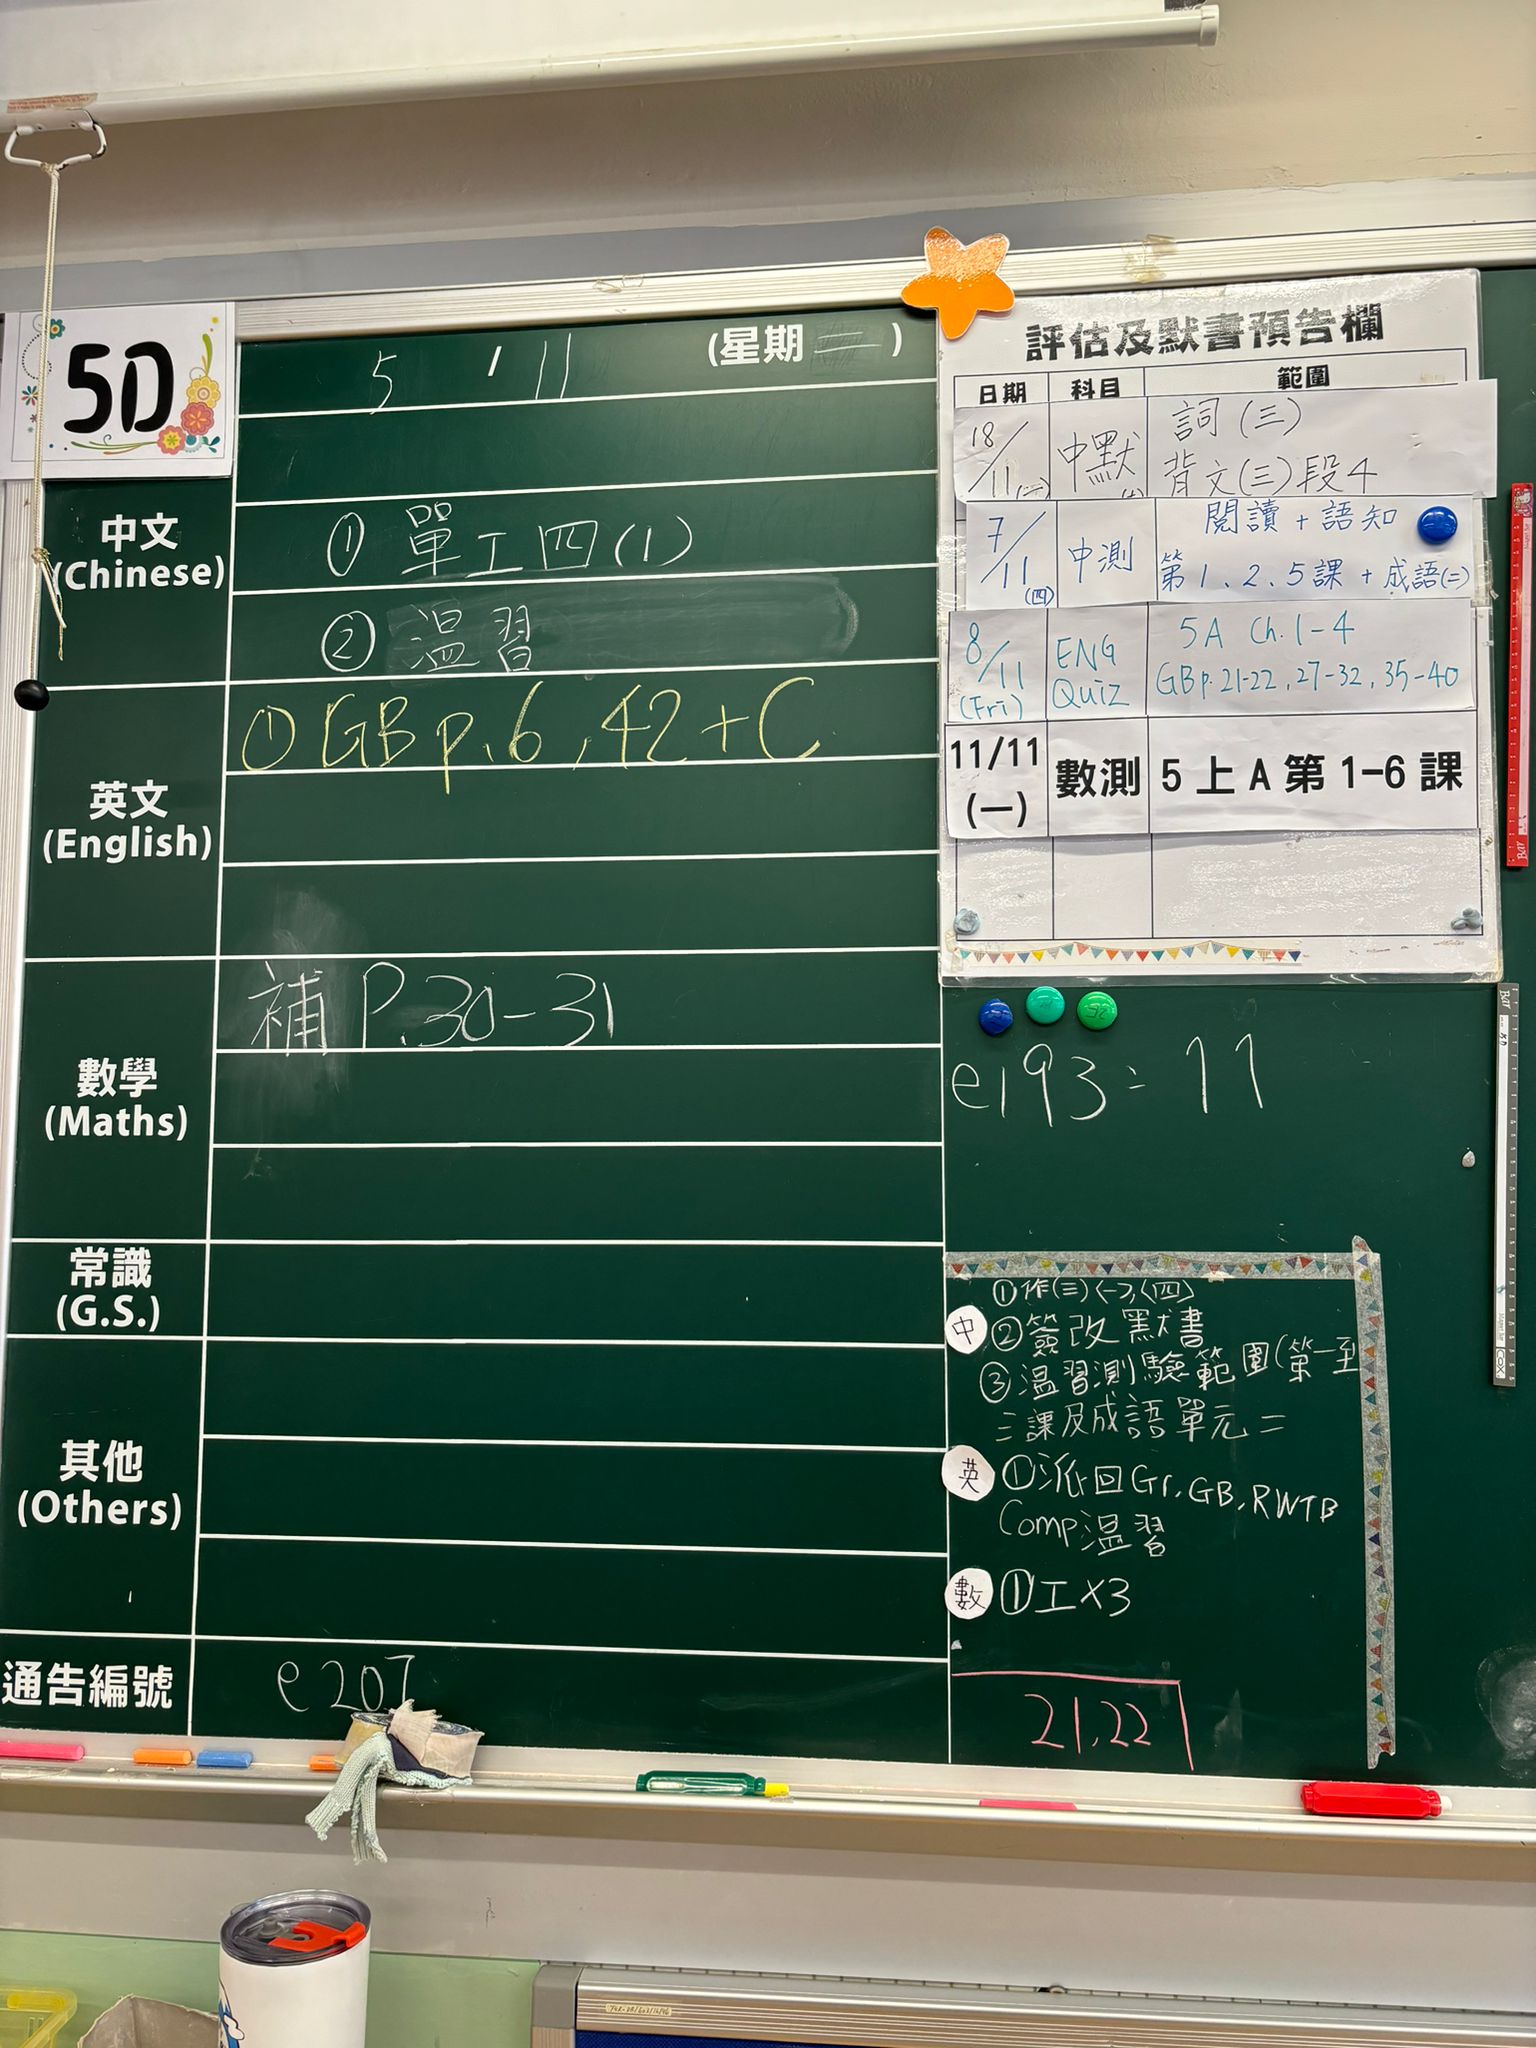 5D
5 / 11 (星期二)
中文
(Chinese)
① 單工四(1)
② 溫習
英文
(English)
① GB p.6, 42 + C
數學
(Maths)
補 P.30-31
常識
(G.S.)
其他
(Others)
通告編號
e207
評估及默書預告欄
日期 科目 範圍
18/11(一) 中默 詞(三)
背文(三)段4
7/11(四) 中測 閱讀+語知
第1、2、5課+成語(二)
8/11(Fri) ENG Quiz 5A Ch.1-4
GB p.21-22, 27-32, 35-40
11/11(一) 數測 5上A第1-6課
e193: 11
中 ①作(三)〈一〉,〈四〉
②簽改默書
③溫習測驗範圍(第一至
三課及成語單元二
英 ①派回Gr, GB, RWTB
Comp溫習
數 ①工x3
21,22